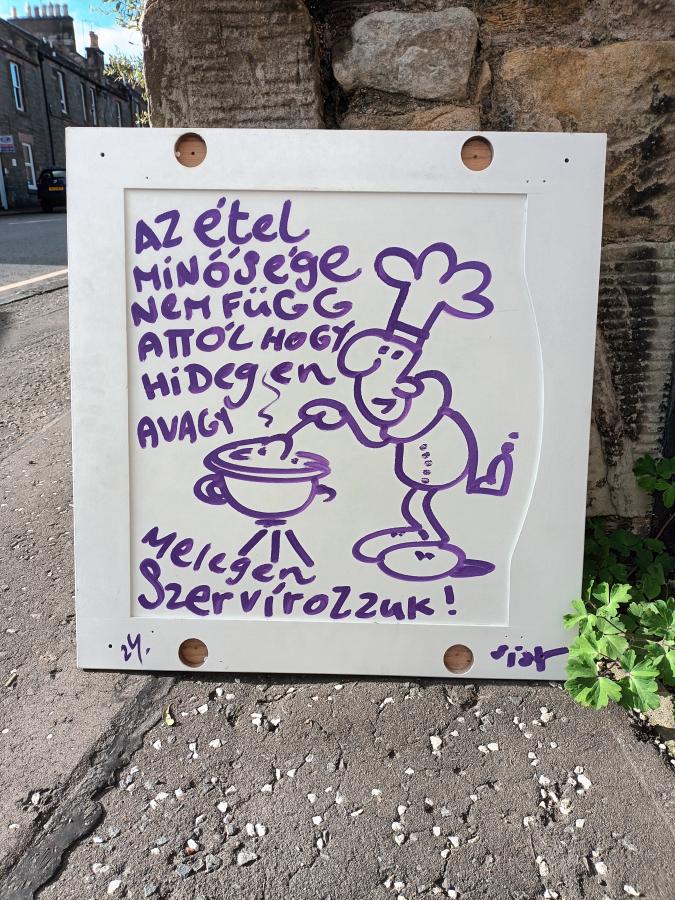 Az étel
minősége
nem függ
attól hogy
hidegen
avagy
melegen
szervírozzuk!
24.